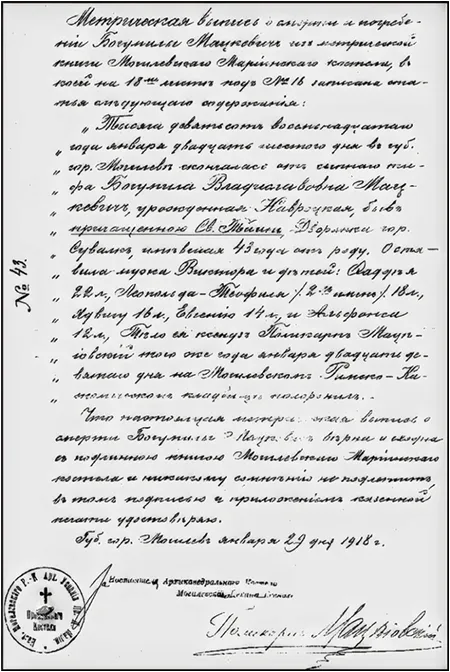 Метрическая выпись о смерти и погребе-
ніи Богумилы Мацкевичъ изъ метрической
книги Могилевскаго Маріинскаго костела, въ
коей на 18-мъ листѣ подъ № 16 записана ста-
тья слѣдующаго содержанія:
„ Тысяча девятьсотъ восемнадцатаго
„ года января двадцать шестого дня въ губ.
„ гор. Могилевѣ скончалась отъ сыпнаго ти-
„ фа Богумила Владиславовна Мац-
„ кевичъ, урожденная Навроцкая, бывъ
„ пріобщенною Св. Тайнъ. Дворянка гор.
„ Сувалкъ, имѣвшая 43 года отъ роду. Оста-
„ вила мужа Виктора и дѣтей: Фаддея
„ 22 л., Леопольда-Теофиля /2-хъ именъ/ 18 л.,
„ Ядвигу 16 л., Евгенію 14 л., и Альфонса
„ 12 л., Тѣло ея ксендзъ Поликарпъ Мацѣ-
„ іовскій того же года января двадцать де-
„ вятаго дня на Могилевскомъ Римско-Ка-
„ толическомъ кладбищѣ похоронилъ.
Что настоящая метрическая выпись о
смерти Богумилы Мацкевичъ вѣрна и сходна
съ подлинною книгою Могилевскаго Маріинскаго
костела и никакому сомнѣнію не подлежитъ,
въ томъ подписью и приложеніемъ казенной
печати удостовѣряю.
Губ. гор. Могилевъ января 29 дня 1918 г.
Настоятель Архикафедральнаго Костела
Поликарпъ Мацѣіовскій
№ 43.